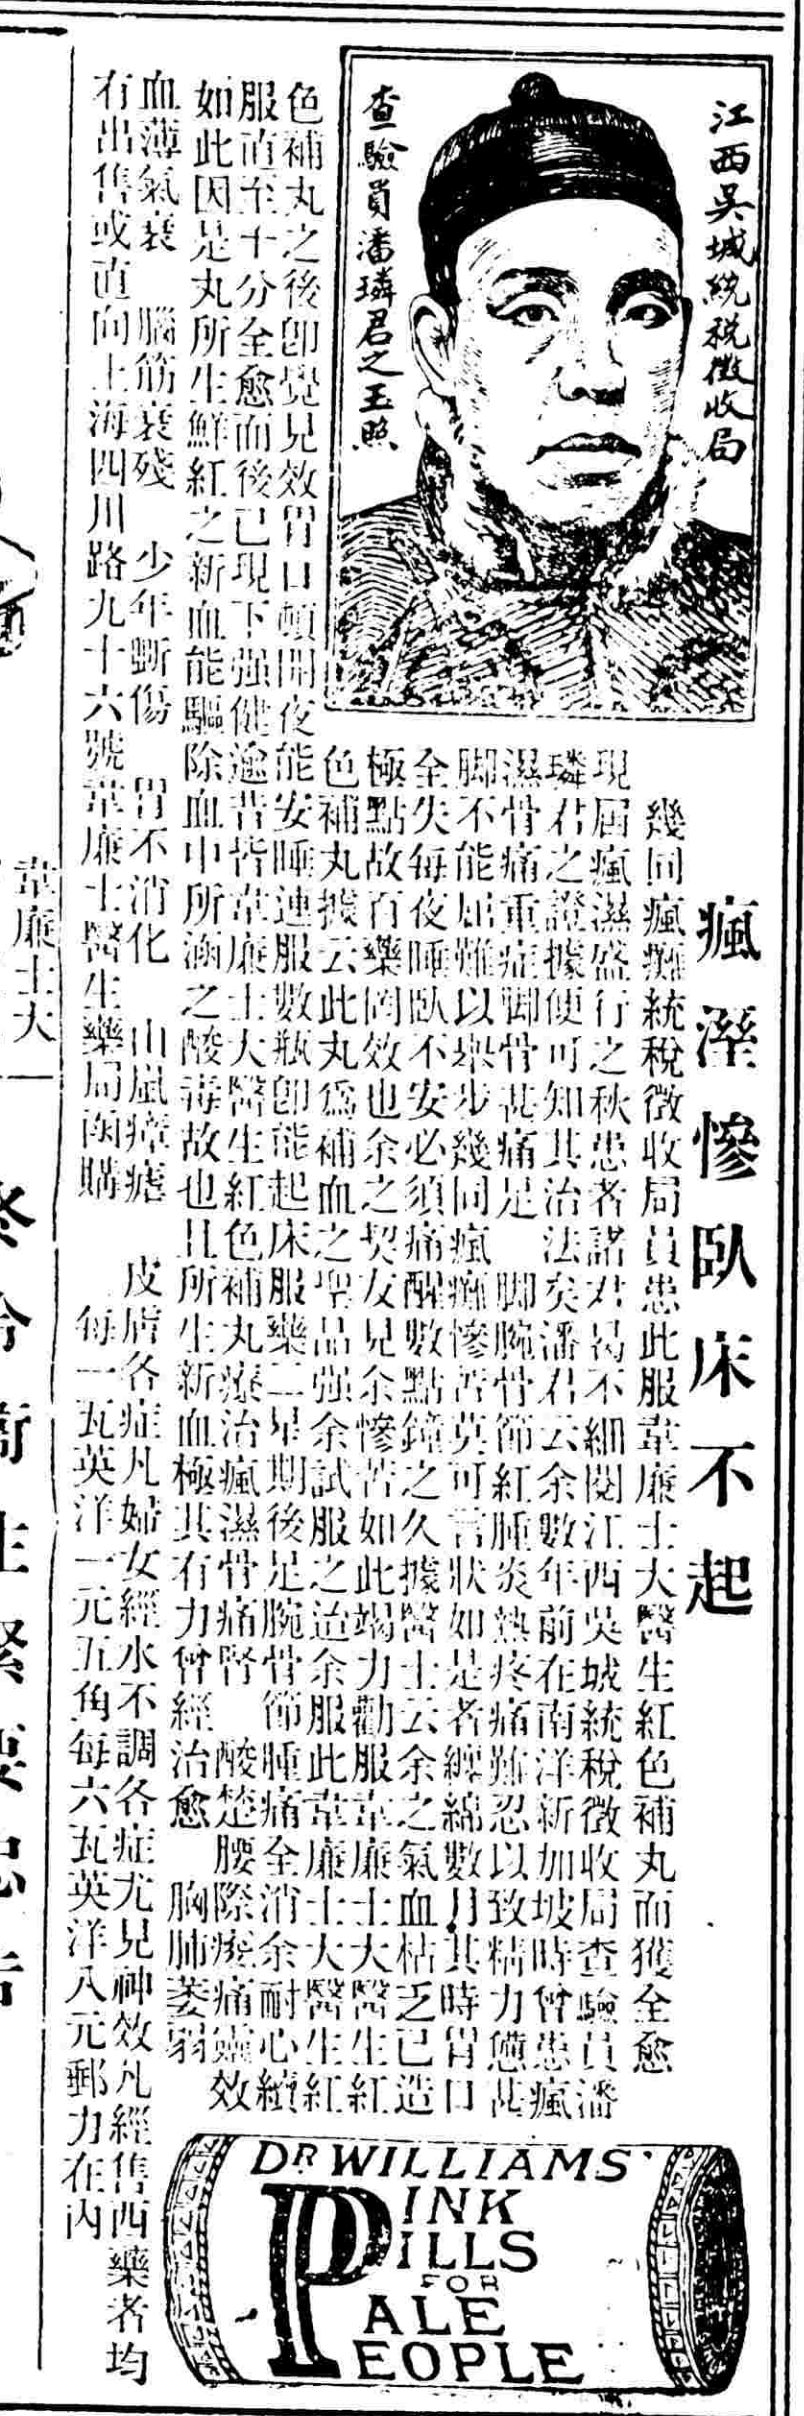 江西吳城統税徵收局
查驗員潘璘君之玉照
瘋溼慘臥床不起
幾回瘋癱統稅徵收局員患此服韋廉士大醫生紅色補丸而獲全愈
現屆瘋濕盛行之秋患者諸君曷不細閱江西吳城統稅徵收局查驗員潘
璘君之證據便可知其治法矣潘君云余數年前在南洋新加坡時曾患瘋
濕骨痛重症脚骨甚痛足 脚腕骨節紅腫炎熱疼痛難忍以致精力憊甚
脚不能屈難以舉步幾回瘋癱慘苦莫可言狀如是者纏綿數月其時胃口
全失每夜睡臥不安必須痛醒數點鐘之久據醫士云余之氣血枯乏已造
極點故百藥罔效也余之契友見余慘苦如此竭力勸服韋廉士大醫生紅
色補丸據云此丸爲補血之聖品强余試服之迨余服此韋廉士大醫生紅
色補丸之後卽覺見效胃口頓開夜能安睡連服數瓶卽能起床服藥二星期後足腕骨節腫痛全消余耐心續
服直至十分全愈而後已現下强健逾昔皆韋廉士大醫生紅色補丸療治瘋濕骨痛腎 酸楚腰際痠痛靈效
如此因是丸所生鮮紅之新血能驅除血中所涵之酸毒故也且所生新血極其有力曾經治愈 胸肺萎弱
血薄氣衰 腦筋衰殘 少年斲傷 胃不消化 山嵐瘴瘧 皮膚各症凡婦女經水不調各症尤見神效凡經售西藥者均
有出售或直向上海四川路九十六號韋廉士醫生藥局函購 每一瓦英洋一元五角每六瓦英洋八元郵力在內
DR WILLIAMS'
PINK
PILLS
FOR
PALE
PEOPLE
韋廉士大
衛生緊要忠告